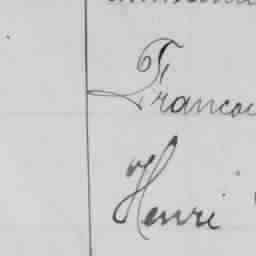 Francoi
Henri